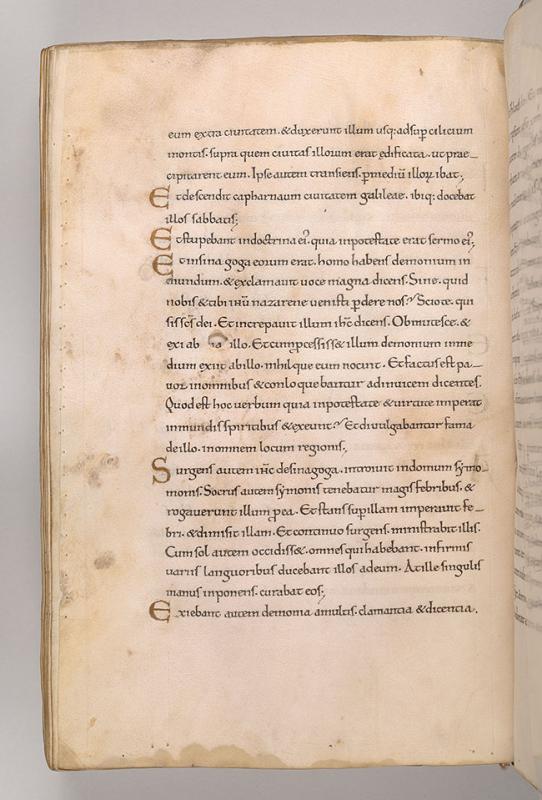 eum extra civitatem. & duxerunt illum usq; adsup cilicium
montis. supra quem civitas illorum erat ędificata. ut prae_
cipitarent eum. Ipse autem transiens. p mediū illoꝝ. ibat;
Et descendit capharnaum civitatem galileae. ibiq; docebat
illos sabbatis;
Et stupebant indoctrina ei'. quia inpotestate erat sermo ei';
Et insinagoga eorum erat. homo habens demonium in
mundum. & exclamavit voce magna dicens. Sine. quid
nobis & tibi ihū nazarene venisti pdere nos? Scio te. qui
sis scs̄ dei. Et increpavit illum ihs̄ dicens. Obmutesce. &
exi ab illo. Et cum
dium exiit abillo. nihilque eum nocuit. Et factus est pa_
vor inomnibus & conloquebantur adinvicem dicentes.
Quod est hoc verbum quia inpotestate & virtute imperat
inmundis spiritibus & exeunt? Et divulgabatur fama
de illo. inomnem locum regionis;
Surgens autem ihc̄ desinagoga. introivit indomum symo_
monis. Socrus autem symonis tenebatur magis febribus. &
rogaverunt illum p ea. Et stans sup illam imperavit fe_
bri. & dimisit illam. Et continuo surgens. ministrabit illis.
Cum sol autem occidiss&. omnes qui habebant. infirmis
variis languoribus ducebant illos adeum. At ille singulis
manus inponens. curabat eos;
Exiebant autem demonia amultis. clamantia & dicentia.